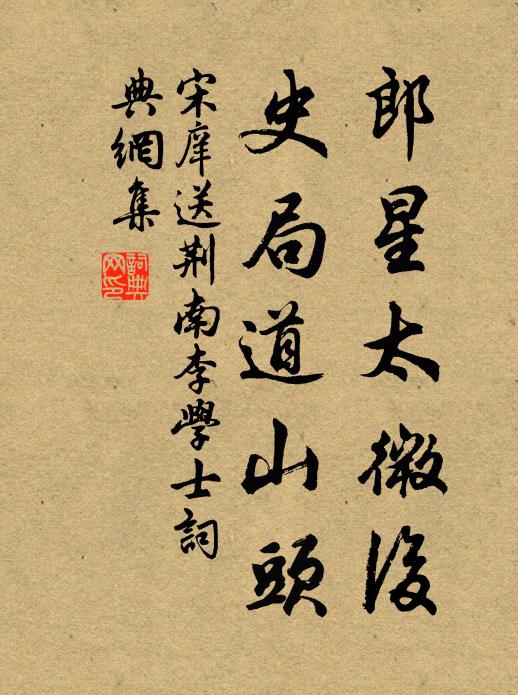 郎星太微後
史局道山頭
宋庠送荆南李學士詞
典網集
詞典網印